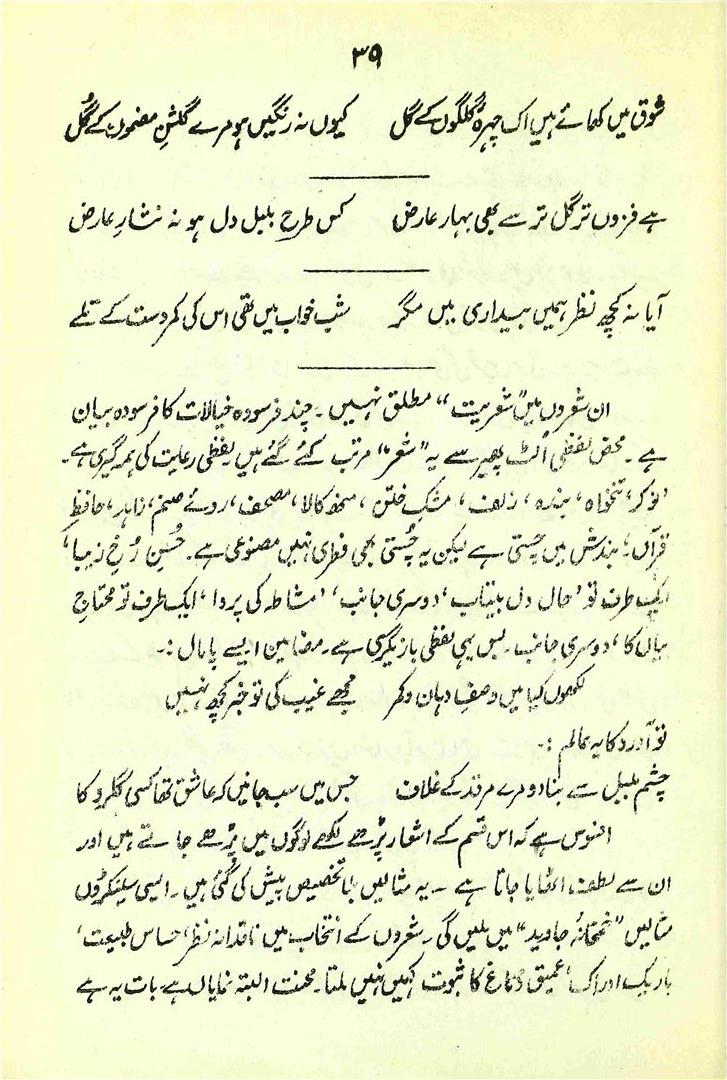 ۳۹
شوق میں کھائے ہیں اک چہرۂ گلگوں کے گل کیوں نہ رنگیں ہو مرے گلشنِ مضموں کے گل
ہے فزوں تر گل تر سے بھی بہار عارض کس طرح بلبل دل ہو نہ نثارِ عارض
آیا نہ کچھ نظر ہمیں بیداری میں مگر شب خواب میں تھی اس کی کمر دست کے تلے
ان شعروں میں "شعریت" مطلق نہیں۔ چند فرسودہ خیالات کا فرسودہ بیان
ہے۔ محض لفظی اُلٹ پھیر سے یہ "شعر" مرتب کئے گئے ہیں۔ لفظی رعایت کی ہمہ گیری ہے۔
'نوکر، تنخواہ، بندہ، زلف، مشکِ ختن، منھ کالا، مصحف، روئے صنم، زاہد، حافظِ
قرآں،' بندش میں چستی ہے لیکن یہ چُستی بھی فطری نہیں مصنوعی ہے۔ حُسنِ رُخِ زیبا،
ایک طرف تو 'حال دل بیتاب، دوسری جانب، 'مشاطہ کی پروا، ایک طرف تو محتاج
بیاں کا، دوسری جانب۔ بس یہی لفظی بازیگری ہے۔ مضامین ایسے پامال :۔
لکھوں کیا میں وصفِ دہان و کمر مجھے غیب کی تو خبر کچھ نہیں
تو آورد کا یہ عالم :۔
چشم بلبل سے بنا دو مرے مرقد کے غلاف جس میں سب جانیں کہ عاشق تھا کسی گلرو کا
افسوس ہے کہ اس قسم کے اشعار پڑھے لکھے لوگوں میں پڑھے جاتے ہیں اور
ان سے لطف اٹھایا جاتا ہے۔ یہ مثالیں بلا تخصیص پیش کی گئی ہیں۔ ایسی سینکڑوں
مثالیں "خمخانۂ جاوید" میں ملیں گی۔ شعروں کے انتخاب میں ناقدانہ نظر، حساس طبیعت،
باریک ادراک، عمیق دماغ کا ثبوت کہیں نہیں ملتا۔ محنت البتہ نمایاں ہے بات یہ ہے